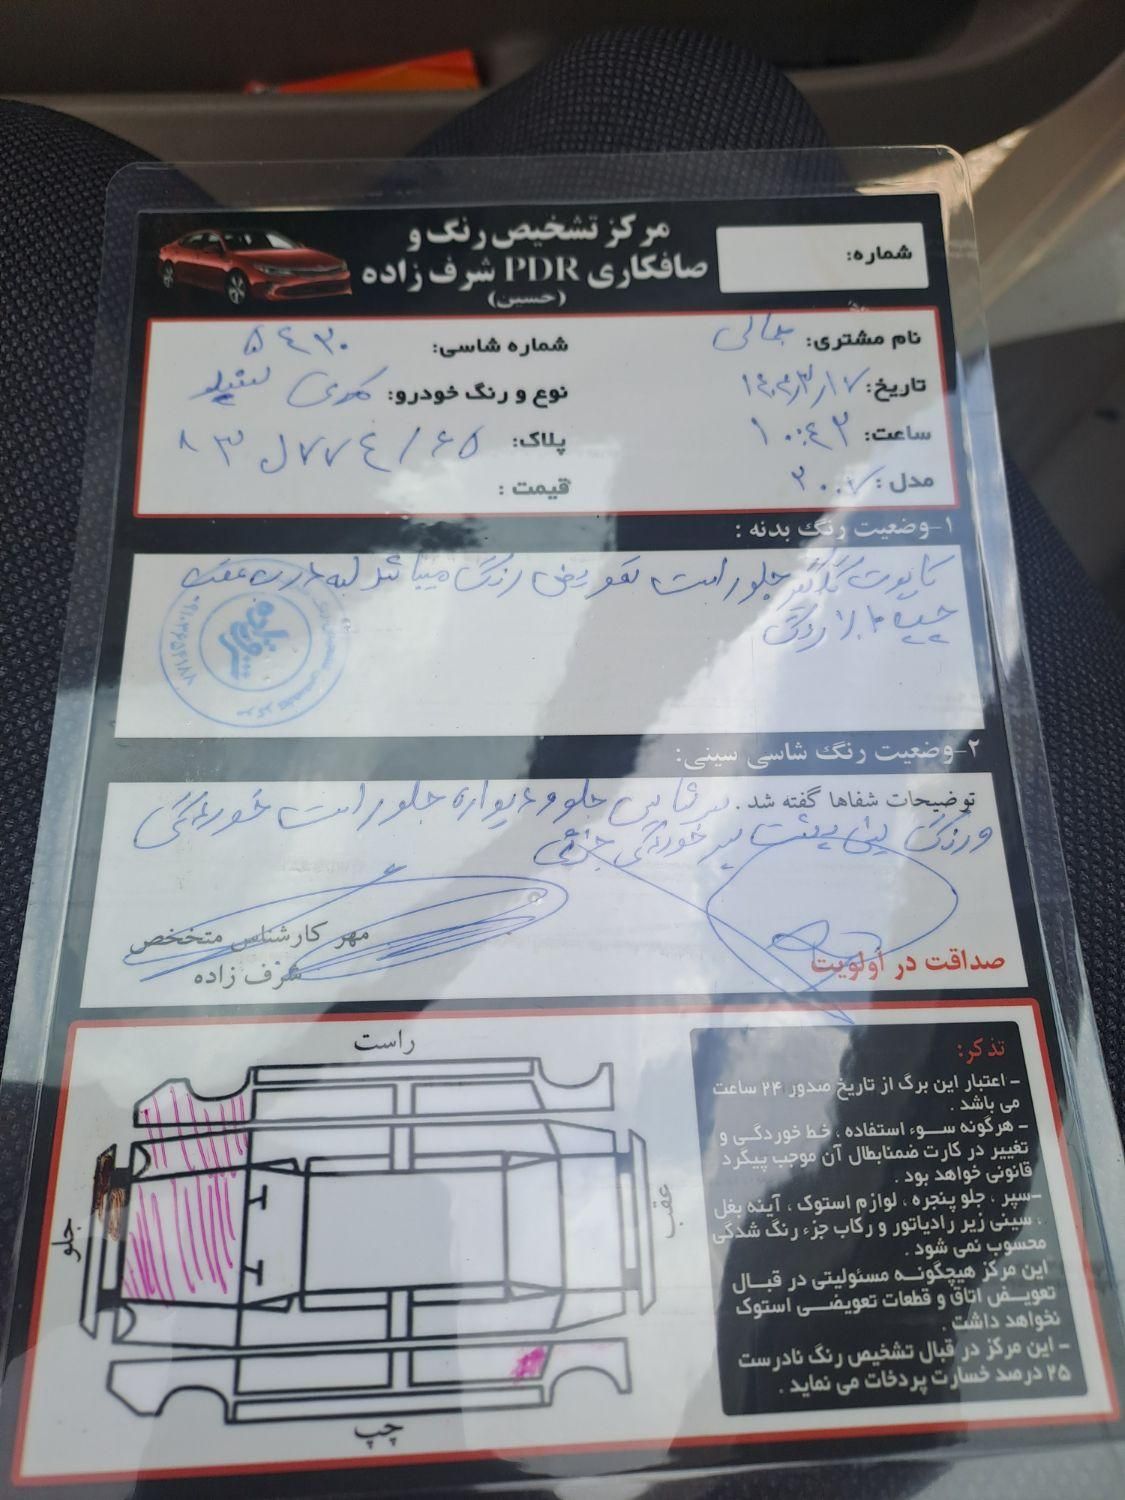 مرکز تشخیص رنگ و
صافکاری PDR شرف زاده
(حسین)
شماره:
نام مشتری: جمالی
شماره شاسی: ۵۴۳۰
تاریخ:
نوع و رنگ خودرو:
ساعت: ۱۰:۴۳
پلاک: ۸۳ ل ۷۷۴ / ۶۵
مدل: ۲۰۰۷
قیمت:
۱-وضعیت رنگ بدنه:
کاپوت گلگیر جلو راست تعویض رنگ میباشد لبه درب عقب
چپ ٪۱۰ رنگ
۲-وضعیت رنگ شاسی سینی:
توضیحات شفاها گفته شد. سرشاسی جلو و دیواره جلو راست خوردگی
و رنگ سینی پشت سپر خوردگی جزئی
مهر کارشناس متخخص
شرف زاده
صداقت در اولویت
راست
جلو
عقب
چپ
تذکر:
- اعتبار این برگ از تاریخ صدور ۲۴ ساعت
می باشد.
- هرگونه سوء استفاده، خط خوردگی و
تغییر در کارت ضمنابطال آن موجب پیگرد
قانونی خواهد بود.
-سپر، جلو پنجره، لوازم استوک، آینه بغل
، سینی زیر رادیاتور و رکاب جزء رنگ شدگی
محسوب نمی شود.
این مرکز هیچگونه مسئولیتی در قبال
تعویض اتاق و قطعات تعویضی استوک
نخواهد داشت.
- این مرکز در قبال تشخیص رنگ نادرست
۲۵ درصد خسارت پردخات می نماید.